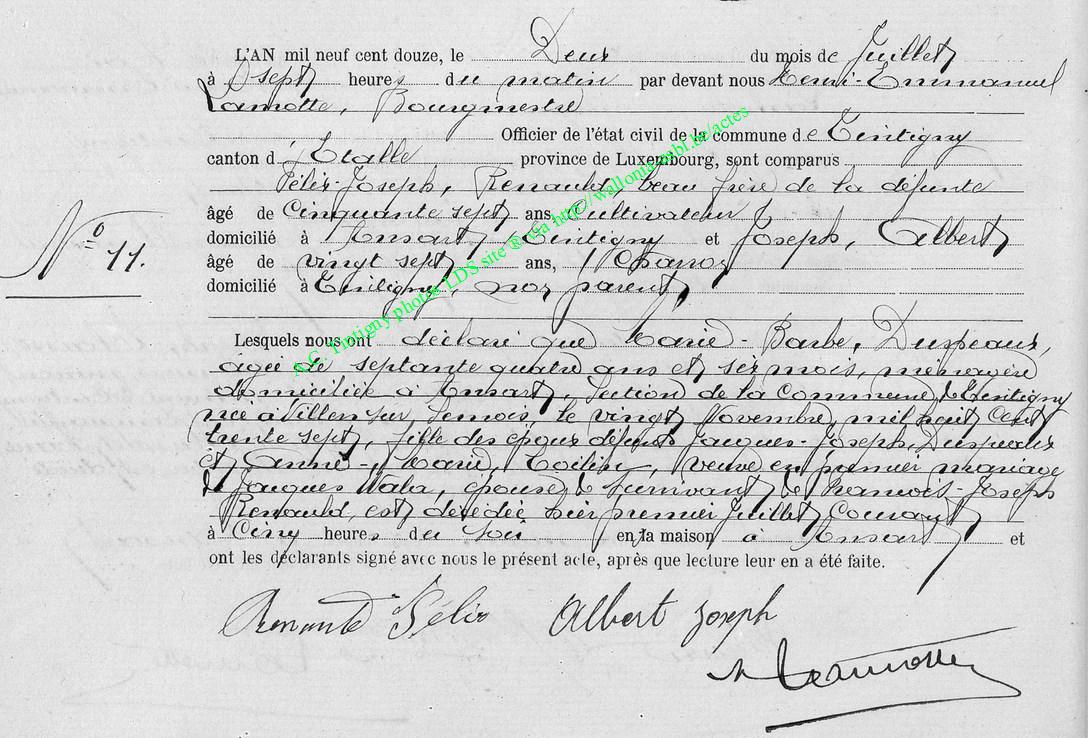 L'AN mil neuf cent douze, le Deux du mois de Juillet
à sept heures du matin par devant nous Henri-Emmanuel
Lamotte, Bourgmestre
Officier de l'état civil de la commune de Tintigny
canton d'Etalle province de Luxembourg, sont comparus
Félix-Joseph, Renauld, beau frère de la défunte
âgé de Cinquante sept ans cultivateur
domicilié à Ansart, Tintigny et Joseph, Albert
N° 11.
âgé de vingt sept ans,
domicilié à Tintigny, non parent,
Lesquels nous ont déclaré que Marie-Barbe, Duspeaux,
âgée de septante quatre ans et six mois, ménagère
domiciliée à Ansart, section de la Commune de Tintigny
née à Villers sur Semois, le vingt Novembre mil huit Cent
trente sept, fille des époux défunts Jacques-Joseph, Duspeaux
et Anne-Marie, veuve en premier mariage
de Jacques épouse de survivant de François-Joseph
Renauld, est décédée hier premier Juillet Courant
à Cinq heures du soir en la maison à Ansart et
ont les déclarants signé avec nous le présent acte, après que lecture leur en a été faite.
Renauld Félix Albert Joseph
H Lamotte
A.C. Tintigny photos LDS site ® via http://wallonia.mbl.be/actes